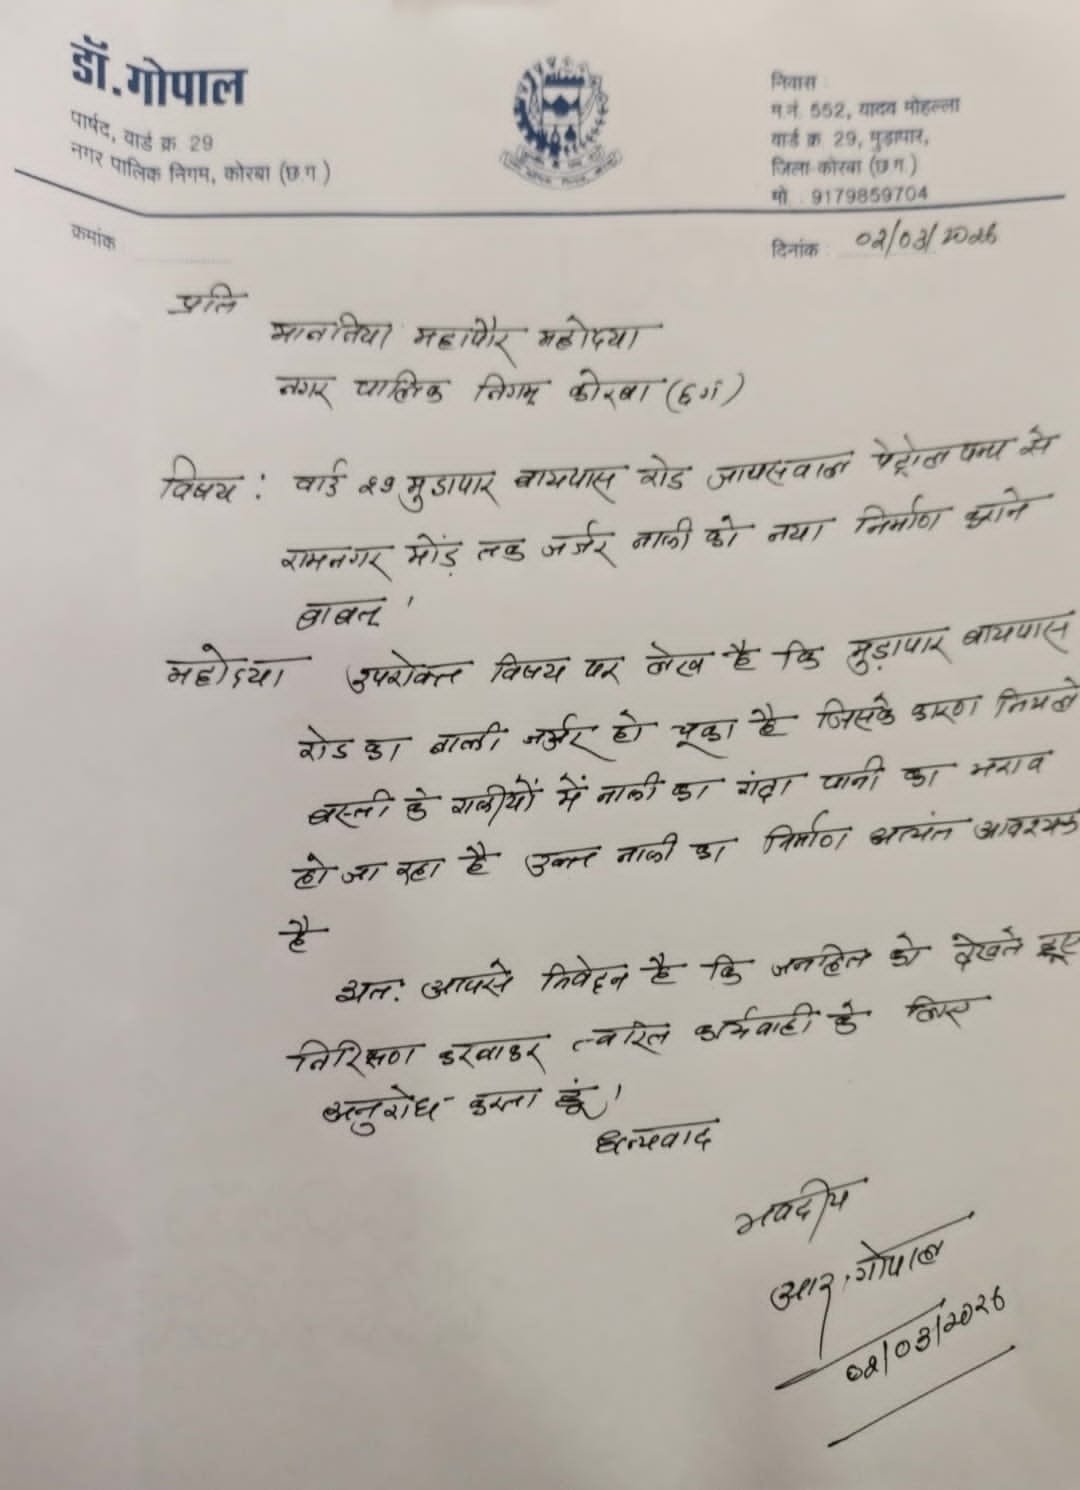 डॉ. गोपाल
पार्षद, वार्ड क्र 29
नगर पालिक निगम, कोरबा (छ.ग.)
निवास :
म.नं. 552, यादव मोहल्ला
वार्ड क्र 29, मुड़ापार,
जिला-कोरबा (छ.ग.)
मो. : 9179859704
क्रमांक
दिनांक : 02/03/2026
प्रति
माननिया महापौर महोदया
नगर पालिक निगम कोरबा (छग)
विषय : वार्ड 29 मुडापार बायपास रोड जायसवाल पेट्रोल पम्प से
रामनगर मोंड़ तक जर्जर नाली को नया निर्माण कराने
बाबत् ।
महोदया उपरोक्त विषय पर लेख है कि मुड़ापार बायपास
रोड का नाली जर्जर हो चूका है जिसके कारण निचले
बस्ती के गलीयों में नाली का गंदा पानी का भराव
हो जा रहा है उक्त नाली का निर्माण अत्यंत आवश्यक
है
अतः आपसे निवेदन है कि जनहित को देखते हूए
निरिक्षण करवाकर त्वरित कार्यवाही के लिए
अनुरोध करता हूं ।
धन्यवाद
भवदीय
आर. गोपाल
02/03/2026